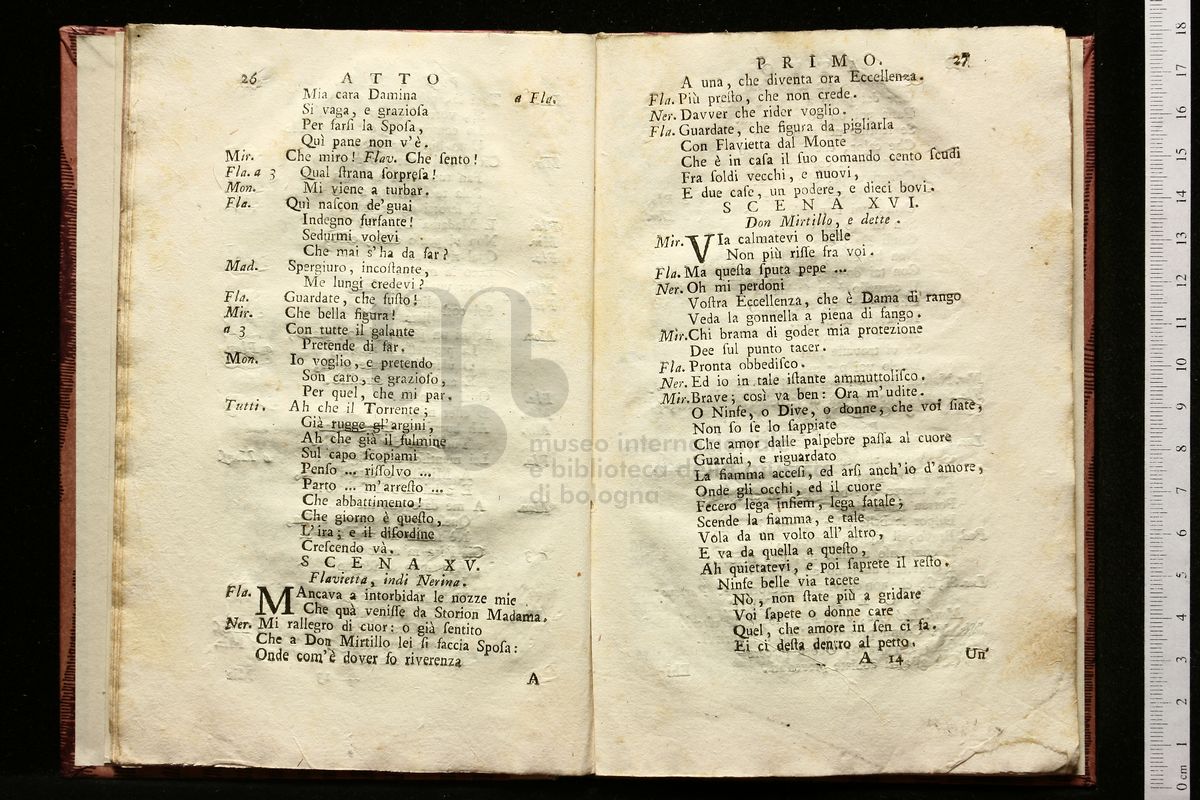 26 ATTO
Mia cara Damina a Fla.
Si vaga, e grazioſa
Per farſi la Spoſa,
Quì pane non v'è.
Mir. Che miro! Flav. Che ſento!
Fla. a 3 Qual ſtrana ſorpreſa!
Mon. Mi viene a turbar.
Fla. Quì naſcon de'guai
Indegno furfante!
Sedurmi volevi
Che mai s'ha da far?
Mad. Spergiuro, incoſtante,
Me lungi credevi?
Fla. Guardate, che fuſto!
Mir. Che bella figura!
a 3 Con tutte il galante
Pretende di far.
Mon. Io voglio, e pretendo
Son caro, e grazioſo,
Per quel, che mi par.
Tutti. Ah che il Torrente;
Già rugge gl'argini,
Ah che già il fulmine
Sul capo ſcopiami
Penſo ... riſſolvo ...
Parto ... m'arreſto ...
Che abbattimento!
Che giorno è queſto,
L'ira; e il diſordine
Creſcendo và.
SCENA XV.
Flavietta, indi Nerina.
Fla. MAncava a intorbidar le nozze mie
Che quà veniſſe da Storion Madama.
Ner. Mi rallegro di cuor: o già ſentito
Che a Don Mirtillo lei ſi faccia Spoſa:
Onde com'è dover fo riverenza
A
PRIMO. 27
A una, che diventa ora Eccellenza.
Fla. Più preſto, che non crede.
Ner. Davver che rider voglio.
Fla. Guardate, che figura da pigliarla
Con Flavietta dal Monte
Che è in caſa il ſuo comando cento ſcudi
Fra ſoldi vecchi, e nuovi,
E due caſe, un podere, e dieci bovi.
SCENA XVI.
Don Mirtillo, e dette.
Mir. VIa calmatevi o belle
Non più riſſe fra voi.
Fla. Ma queſta ſputa pepe ...
Ner. Oh mi perdoni
Voſtra Eccellenza, che è Dama di rango
Veda la gonnella a piena di fango.
Mir. Chi brama di goder mia protezione
Dee ſul punto tacer.
Fla. Pronta obbediſco.
Ner. Ed io in tale iſtante ammuttoliſco.
Mir. Brave; così va ben: Ora m'udite.
O Ninfe, o Dive, o donne, che voi ſiate,
Non ſo ſe lo ſappiate
Che amor dalle palpebre paſſa al cuore
Guardai, e riguardato
La fiamma acceſi, ed arſi anch'io d'amore,
Onde gli occhi, ed il cuore
Fecero lega inſiem, lega fatale;
Scende la fiamma, e tale
Vola da un volto all'altro,
E va da quella a queſto,
Ah quietatevi, e poi ſaprete il reſto.
Ninfe belle via tacete
Nò, non ſtate più a gridare
Voi ſapete o donne care
Quel, che amore in ſen ci fa.
Ei ci deſta dentro al petto.
A 14 Un'
museo interna
e biblioteca d
di bologna